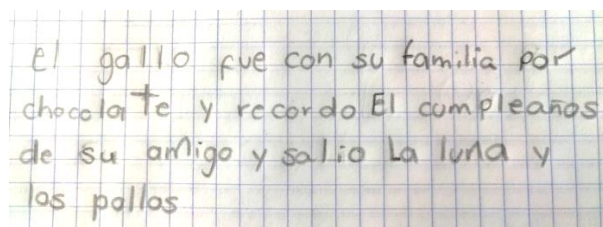 el gallo fue con su familia por
chocolate y recordo El cumpleaños
de su amigo y salio La luna y
los pollos